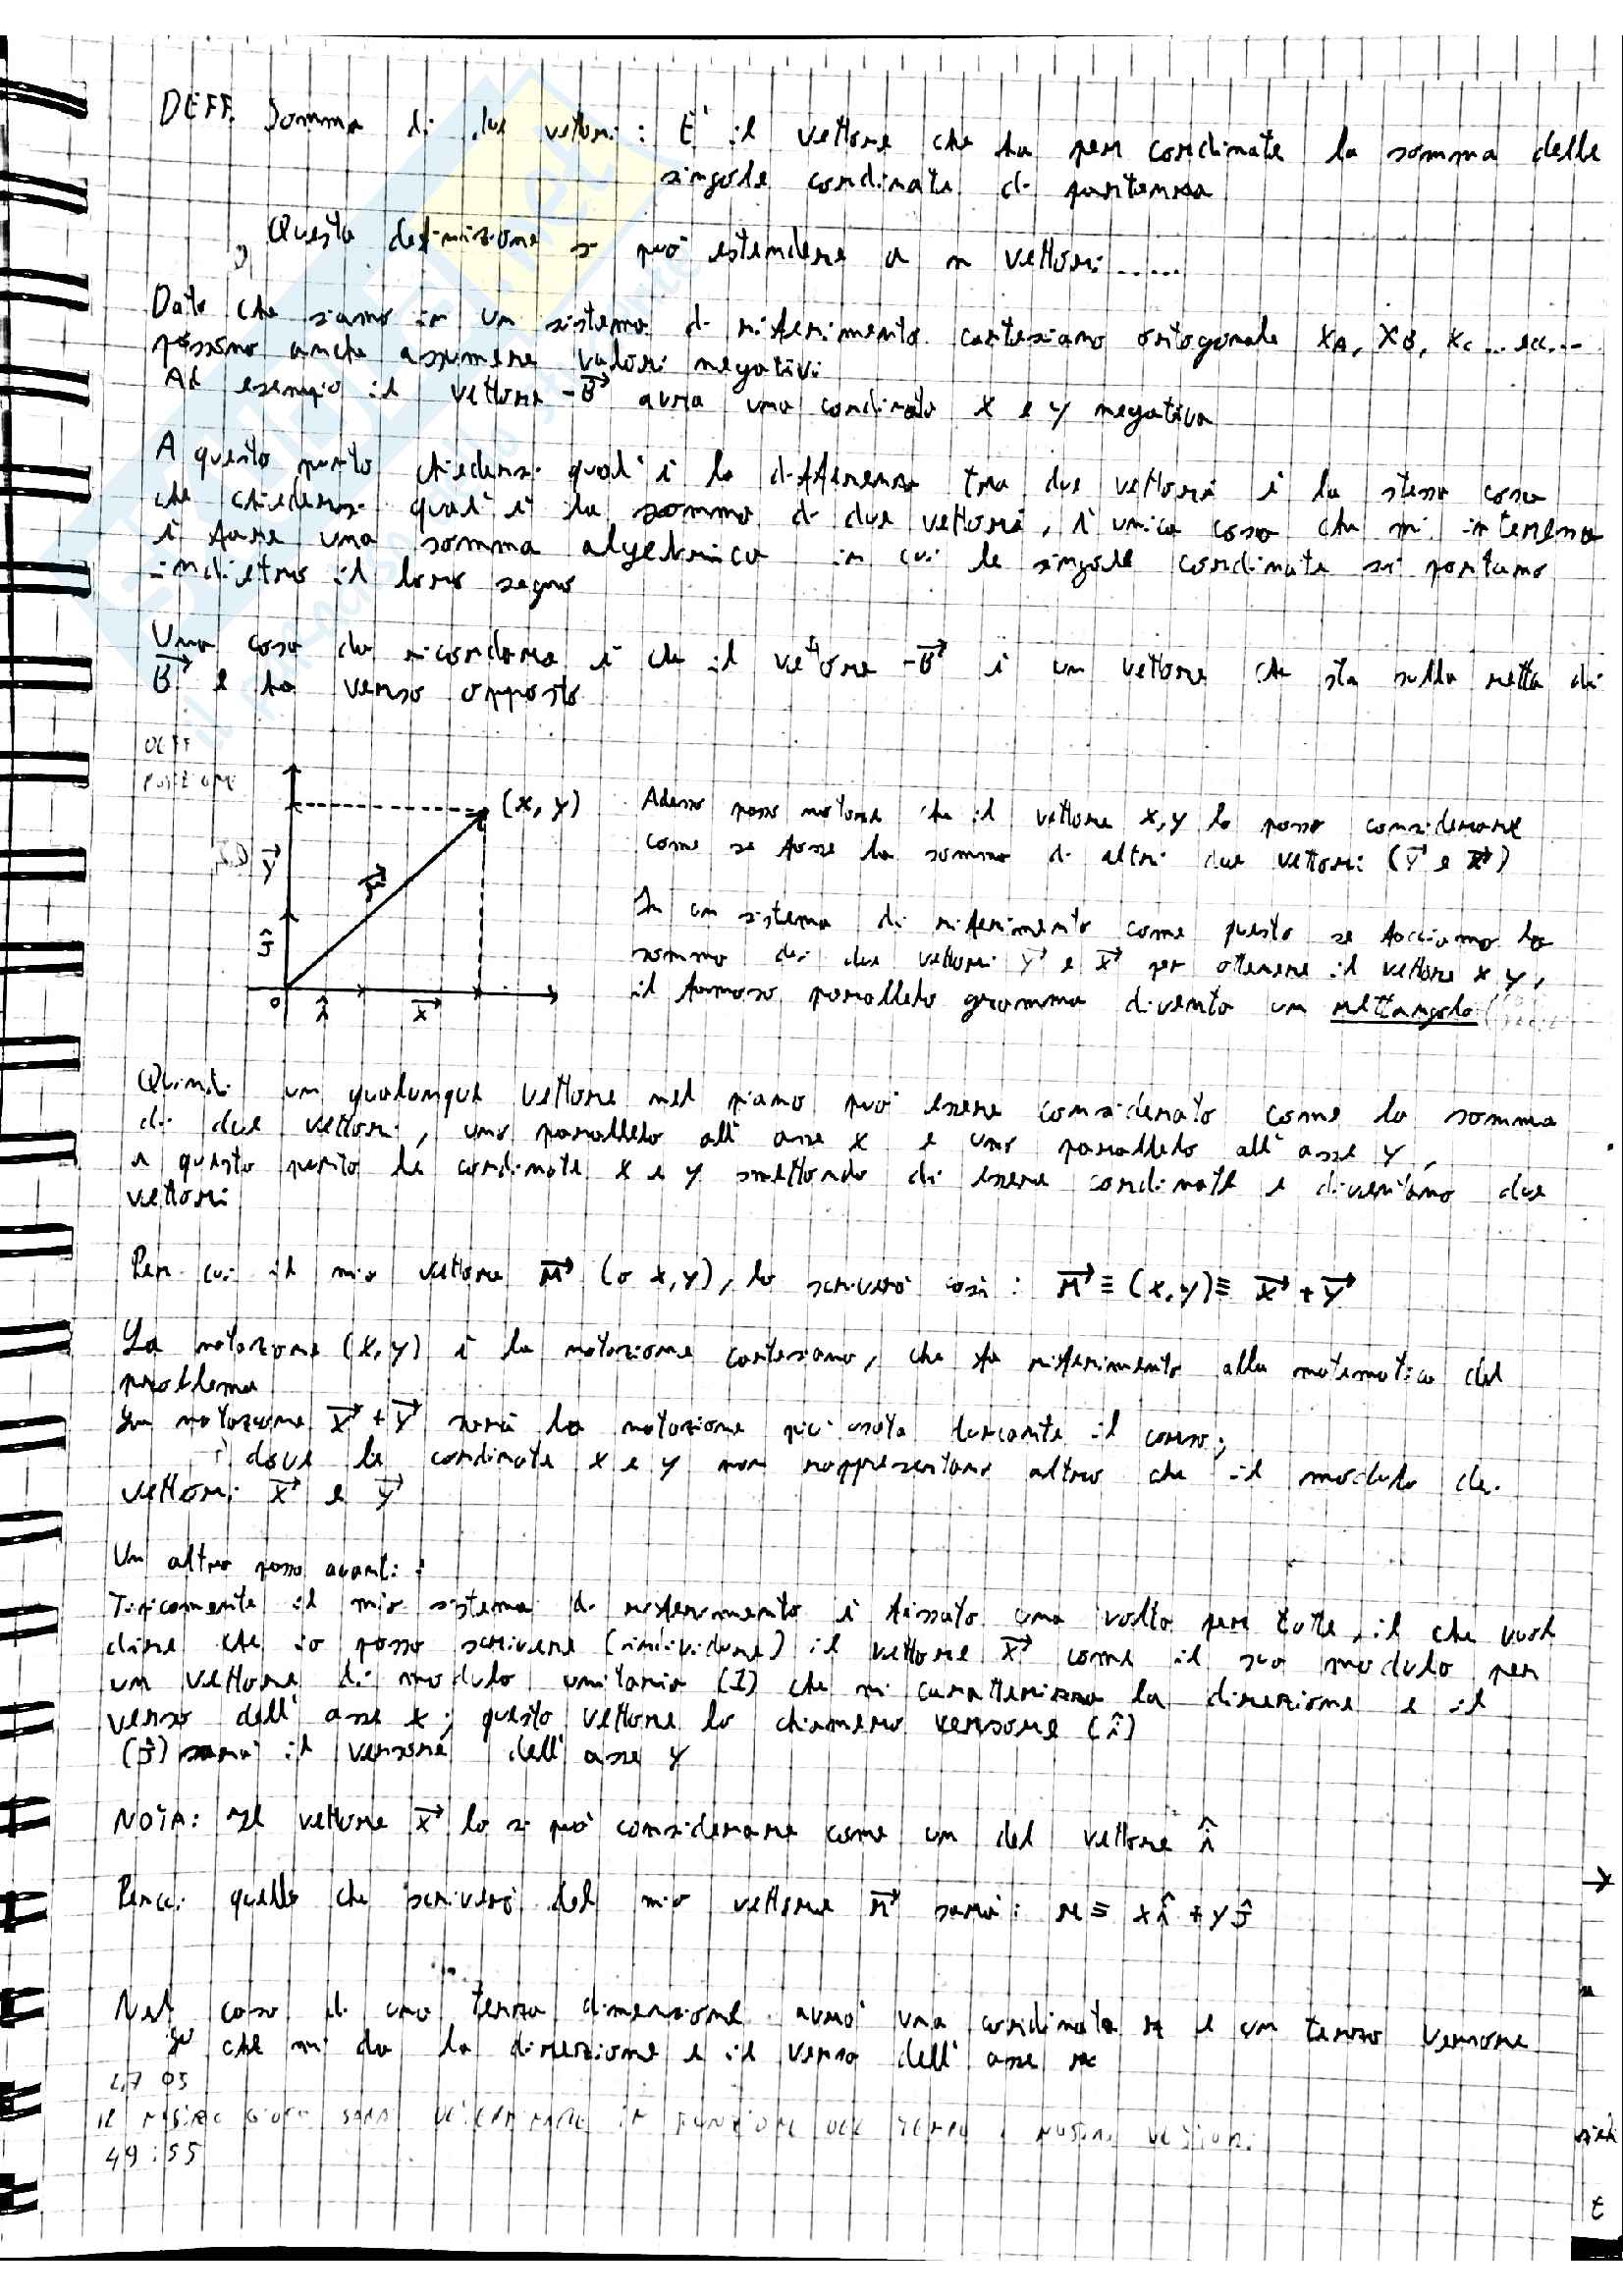 DEFF. Somma di due vettori: E' il vettore che ha per cordinate la somma delle
singole cordinate di partenza
Questa definizione si può estendere a n vettori......
Dato che siamo in un sistema di riferimento cartesiano ortogonale XA, XB, XC ... ecc...
possono anche assumere valori negativi
Ad esempio il vettore -B avrà una cordinata x e y negativa
A questo punto chiedersi qual'è la differenza tra due vettori è la stessa cosa
che chiedersi qual'è la somma di due vettori, l'unica cosa che mi interessa
è fare una somma algebrica in cui le singole cordinate si portano
indietro il loro segno
Una cosa da ricordare è che il vettore -B è un vettore che sta sulla retta di
B e ha verso opposto
DEFF
POSIZIONE
(x, y)
Adesso posso notare che il vettore x,y lo posso considerare
come se fosse la somma di altri due vettori (Y e X)
Y
r
In un sistema di riferimento come questo se facciamo la
ĵ
somma dei due vettori Y e X per ottenere il vettore x y,
il famoso parallelo gramma diventa un rettangolo
0 î X
Quindi un qualunque vettore nel piano può essere considerato come la somma
di due vettori, uno parallelo all'asse x e uno parallelo all'asse y,
a questo punto le cordinate x e y smettono di essere cordinate e diventano due
vettori
Per cui il mio vettore r (o x,y), lo scriverò così: r ≡ (x,y) ≡ X + Y
La notazione (x,y) è la notazione cartesiana, che fa riferimento alla matematica del
problema
La notazione X + Y sarà la notazione più usata durante il corso;
dove le cordinate x e y non rappresentano altro che il modulo dei
vettori X e Y
Un altro passo avanti:
Tipicamente il mio sistema di riferimento è fissato una volta per tutte, il che vuol
dire che io posso scrivere (individuare) il vettore X come il suo modulo per
un vettore di modulo unitario (1) che mi caratterizza la direzione e il
verso dell'asse x; questo vettore lo chiamerò versore (î)
(ĵ) sarà il versore dell'asse y
NOTA: Il vettore X lo si può considerare come un del vettore î
Percui quello che scriverò del mio vettore r sarà: r ≡ xî + yĵ
Nel caso di una terza dimensione avrò una cordinata z e un terzo versore
che mi da la direzione e il verso dell'asse z
47 05
IL SARA IN FUNZIONE DEL TEMPO
49:55